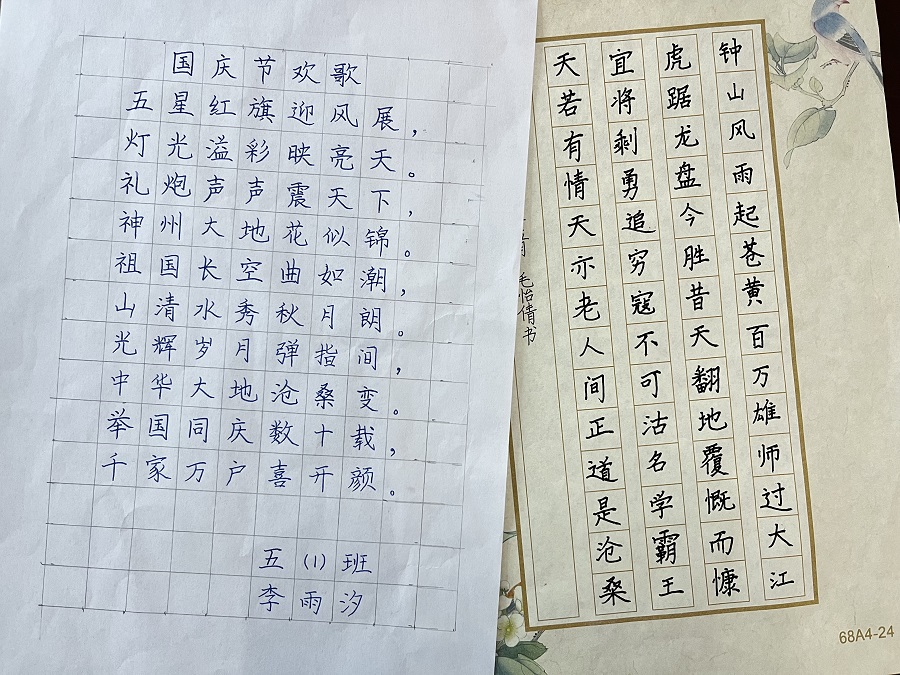 国庆节欢歌
五星红旗迎风展，
灯光溢彩映亮天。
礼炮声声震天下，
神州大地花似锦。
祖国长空曲如潮，
山清水秀秋月朗。
光辉岁月弹指间，
中华大地沧桑变。
举国同庆数十载，
千家万户喜开颜。
五⑴班
李雨汐
钟山风雨起苍黄百万雄师过大江
虎踞龙盘今胜昔天翻地覆慨而慷
宜将剩勇追穷寇不可沽名学霸王
天若有情天亦老人间正道是沧桑
毛怡倩书
68A4-24